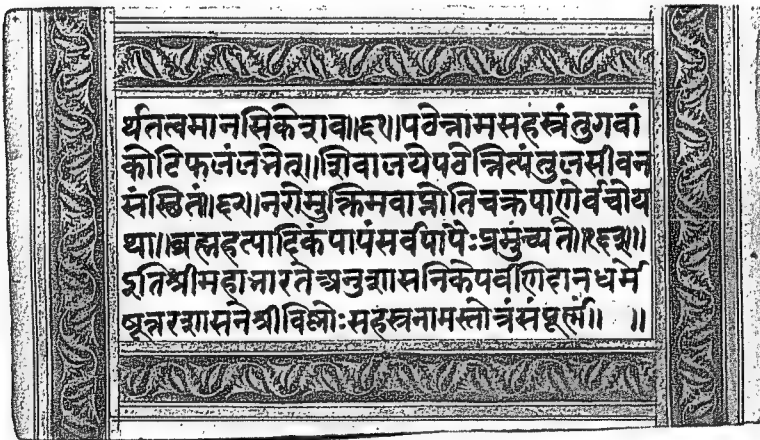 र्थतत्वमानसिकेशव॥६१॥पठेन्नामसहस्त्रंतुगवां
कोटिफलंलभेत्॥शिवालयेपठेन्नित्यंतुलसीवन
संस्छितं॥६२॥नरोमुक्तिमवाप्नोतिचक्रपाणेर्वचोय
था॥ब्रह्महत्यादिकंपापंसर्वपापैःप्रमुच्यते॥१६३॥
इतिश्रीमहाभारतेअनुशासनिकेपर्वणिदानधर्म
षूत्तरशासनेश्रीविष्णोःसहस्त्रनामस्तोत्रंसंपूर्त्मं॥ ॥